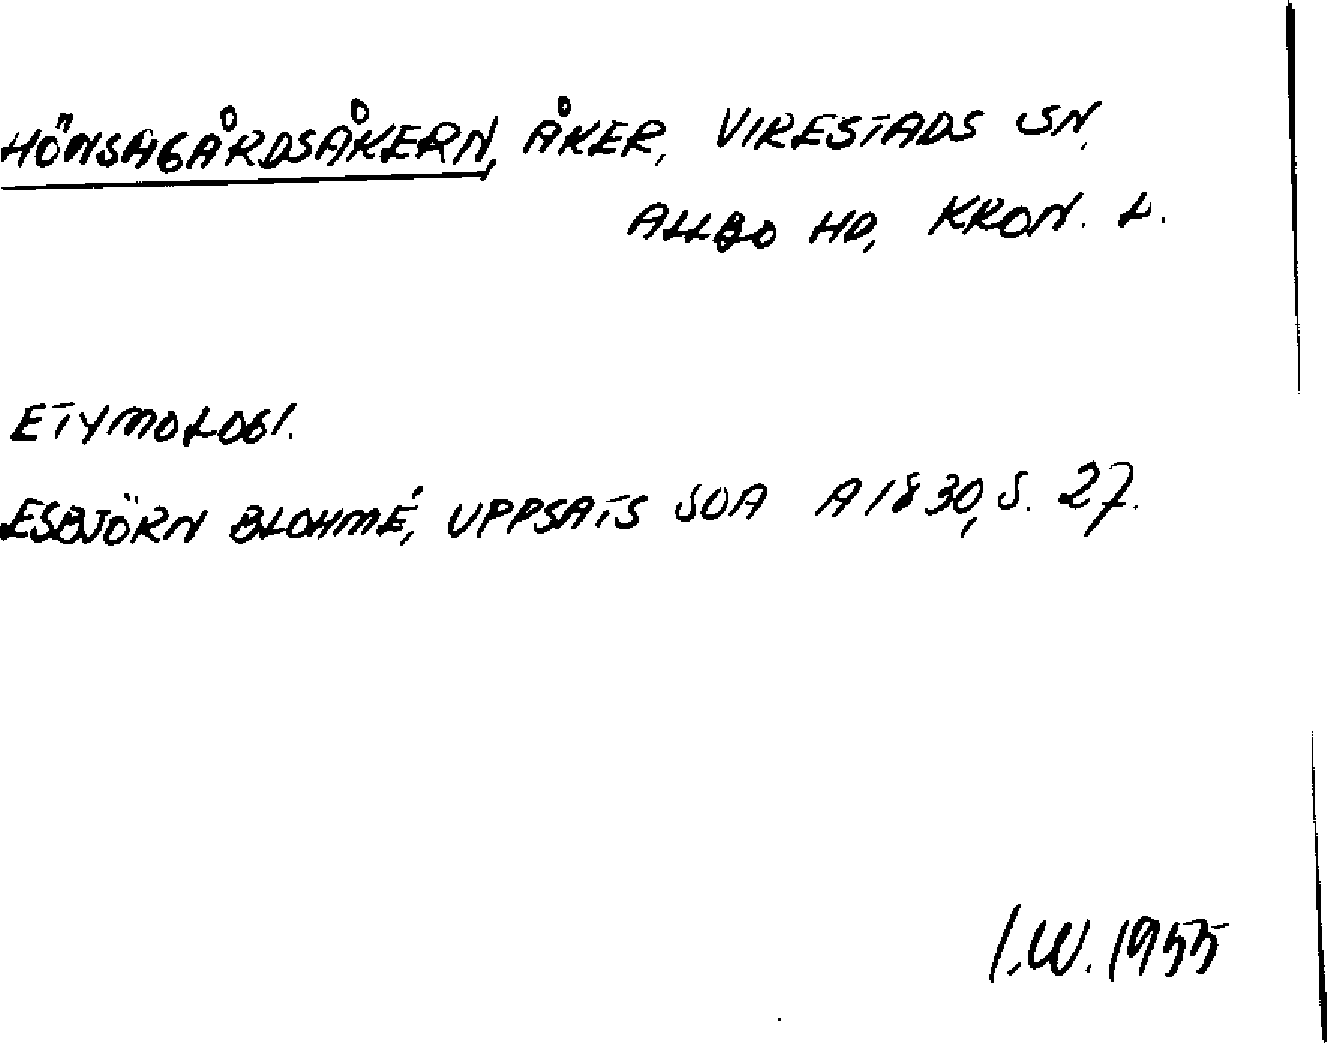 HÖNSAGÅRDSÅKERN, ÅKER, VIRESTADS SN,
ALLBO HD, KRON. L.
ETYMOLOGI.
ESBJÖRN BLOHMÉ, UPPSATS SOA A 1830, S. 27.
I.W. 1955